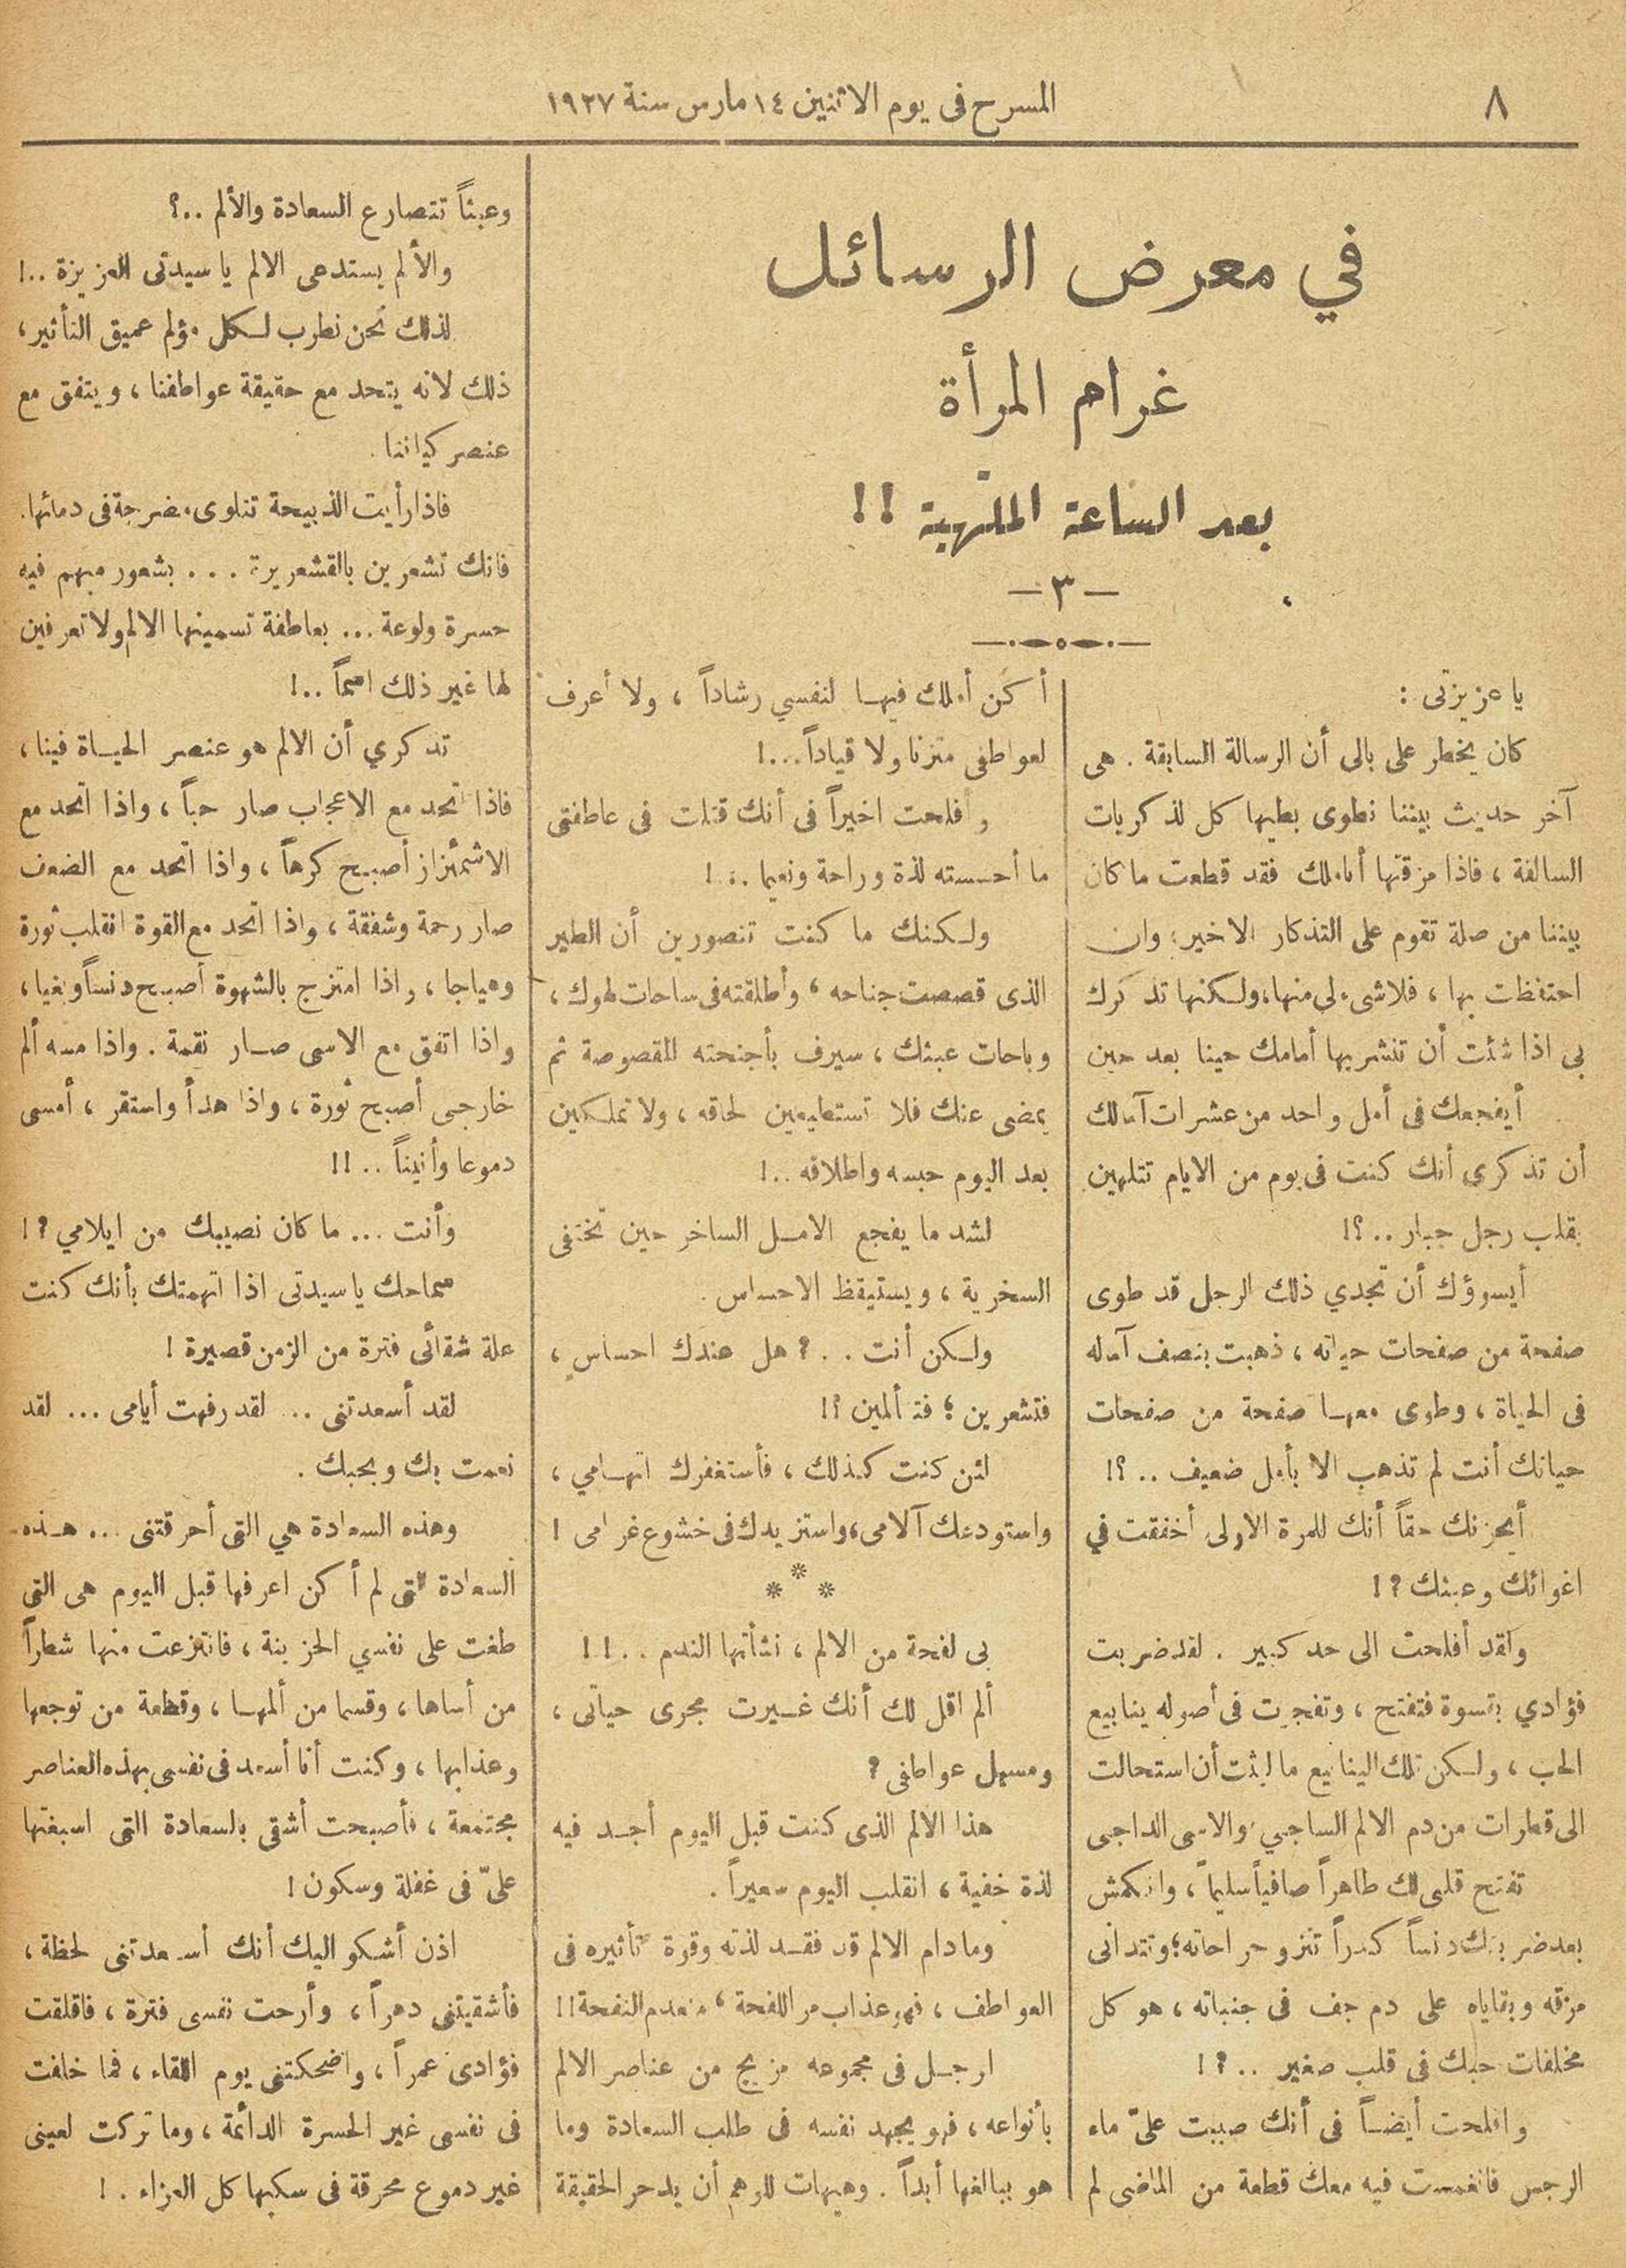 ٨
المسرح فى يوم الاثنين ١٤ مارس سنة ١٩٢٧
في معرض الرسائل
غرام المرأة
بعد الساعة الملتهبة !!
— ٣ —
يا عزيزتى :
كان يخطر على بالى أن الرسالة السابقة . هى
آخر حديث بيننا نطوى بطيها كل لذكريات
السالفة ، فاذا مزقتها أناملك فقد قطعت ما كان
بيننا من صلة تقوم على التذكار الاخير ، وان
احتفظت بها ، فلا شىء لى منها ، ولكنها تذكرك
بى اذا شئت أن تنشريها أمامك حينا بعد حين
أيفجعك فى أمل واحد من عشرات آمالك
أن تذكرى أنك كنت فى يوم من الايام تتلهين
بقلب رجل جبار .. ؟!
أيسوؤك أن تجدي ذلك الرجل قد طوى
صفحة من صفحات حياته ، ذهبت بنصف آماله
فى الحياة ، وطوى معها صفحة من صفحات
حياتك أنت لم تذهب الا بأمل ضعيف .. ؟!
أيحزنك حقاً أنك للمرة الاولى أخفقت في
اغوائك وعبثك ؟ !
ولقد أفلحت الى حد كبير . لقد ضربت
فؤادي بقسوة فتفتح ، وتفجرت فى أصوله ينابيع
الحب ، ولكن تلك الينابيع ما لبثت أن استحالت
الى قطرات من دم الالم الساجي والاسى الداجى
تفتح قلبى لك طاهراً صافياً سليماً ، وانكمش
بعد ضربتك دنساً كدراً تنزو جراحاته ؛ وتتدانى
مزقه وبقاياه على دم جف فى جنباته ، هو كل
مخلفات حبك فى قلب صغير .. ؟ !
وافلحت أيضاً فى أنك صببت علىّ ماء
الرجس فانغمست فيه معك قطعة من الماضى لم
أكن أملك فيها لنفسي رشاداً ، ولا أعرف
لعواطفى متزنا ولا قياداً ... !
وأفلحت اخيراً فى أنك قتلت فى عاطفتى
ما أحسسته لذة وراحة ونعيما .. !
ولكنك ما كنت تتصورين أن الطير
الذى قصصت جناحه ، وأطلقته فى ساحات لهوك ،
وباحات عبثك ، سيرف بأجنحته المقصوصة ثم
يمضى عنك فلا تستطيعين لحاقه ، ولا تملكين
بعد اليوم حبسه واطلاقه .. !
لشد ما يفجع الامل الساخر حين تختفى
السخرية ، ويستيقظ الاحساس .
ولكن أنت . . ؟ هل عندك احساس ،
فتشعرين ؛ فتألمين ؟!
لئن كنت كذلك ، فأستغفرك اتهامي ،
واستودعك آلامى ، واستزيدك فى خشوع غرامى !
* * *
بى لفحة من الالم ، نشأتها الندم .. ! !
ألم اقل لك أنك غيرت مجرى حياتى ،
ومسيل عواطفى ؟
هذا الالم الذى كنت قبل اليوم أجد فيه
لذة خفية ، انقلب اليوم سعيراً .
ومادام الالم قد فقد لذته وقوة تأثيره فى
العواطف ، فهو عذاب مر اللفحة ، منعدم النفحة !!
ارجل فى مجموعه مزيج من عناصر الالم
بأنواعه ، فهو يجهد نفسه فى طلب السعادة وما
هو ببالغها أبداً . وهيهات للوهم أن يدحر الحقيقة
وعبثاً تتصارع السعادة والألم ..؟
والألم يستدعى الالم يا سيدتى العزيزة .. !
لذلك نحن نطرب لكل مؤلم عميق التأثير ،
ذلك لانه يتحد مع حقيقة عواطفنا ، ويتفق مع
عنصر كياننا .
فاذا رأيت الذبيحة تتلوى مضرجة فى دمائها.
فانك تشعرين بالقشعريرة ... بشعور مبهم فيه
حسرة ولوعة ... بعاطفة تسمينها الالم ولا تعرفين
لها غير ذلك اسماً .. !
تذكري أن الالم هو عنصر الحياة فينا ،
فاذا اتحد مع الاعجاب صار حباً ، واذا اتحد مع
الاشمئزاز أصبح كرهاً ، واذا اتحد مع الضعف
صار رحمة وشفقة ، واذا اتحد مع القوة انقلب ثورة
وهياجا ، واذا امتزج بالشهوة أصبح دنساً وبغيا ،
واذا اتفق مع الاسى صار نقمة . واذا مسه ألم
خارجى أصبح ثورة ، واذا هدأ واستقر ، أمسى
دموعا وأنيناً .. !!
وأنت ... ما كان نصيبك من ايلامي ؟ !
سماحك يا سيدتى اذا اتهمتك بأنك كنت
علة شقائى فترة من الزمن قصيرة !
لقد أسعدتنى .. لقد رفهت أيامى ... لقد
نعمت بك وبحبك .
وهذه السعادة هي التى أحرقتنى ... هذه
السعادة التى لم أكن اعرفها قبل اليوم هى التى
طغت على نفسي الحزينة ، فانتزعت منها شطراً
من أساها ، وقسما من ألمها ، وقطعة من توجعها
وعذابها ، وكنت أنا أسعد فى نفسى بهذه العناصر
مجتمعة ، فأصبحت أشقى بالسعادة التى اسبغتها
علىّ فى غفلة وسكون !
اذن أشكو اليك أنك أسعدتنى لحظة ،
فأشقيتنى دهراً ، وأرحت نفسى فترة ، فاقلقت
فؤادى عمراً ، واضحكتنى يوم اللقاء ، فما خلفت
فى نفسى غير الحسرة الدائمة ، وما تركت لعينى
غير دموع محرقة فى سكبها كل العزاء . !